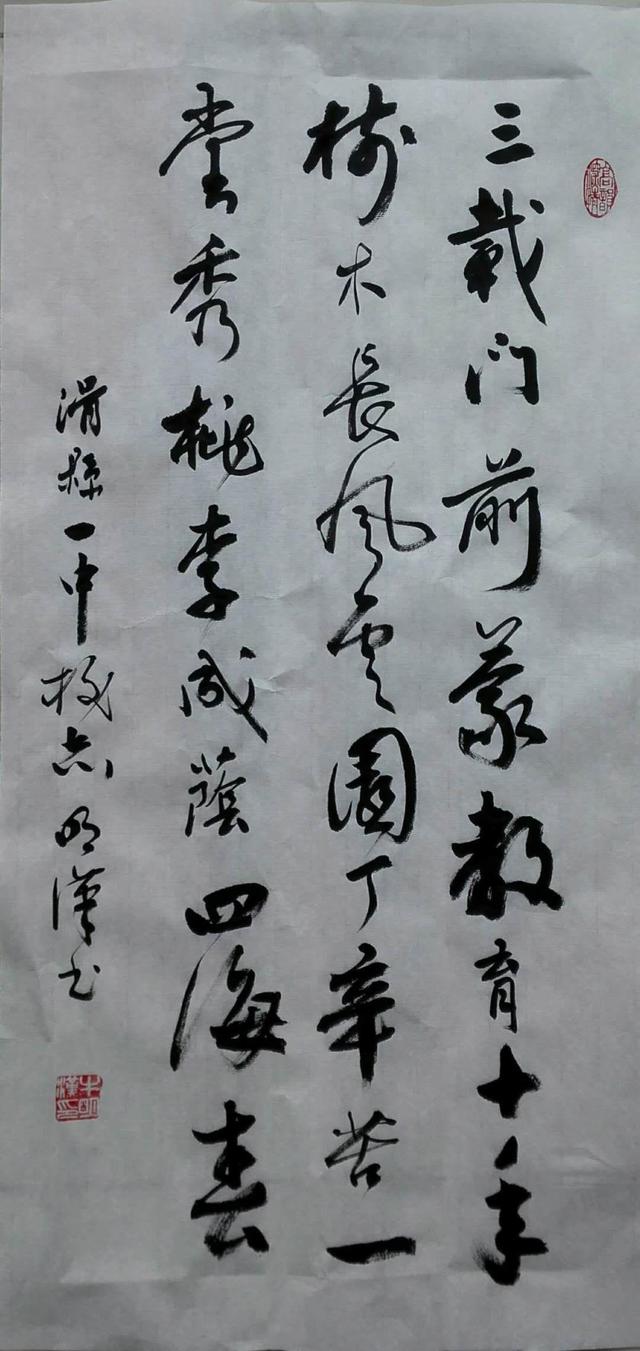 三载门前蒙教育十年
树木长风云園丁辛苦一
堂秀桃李成蔭四海春
滑縣一中校志明漢书